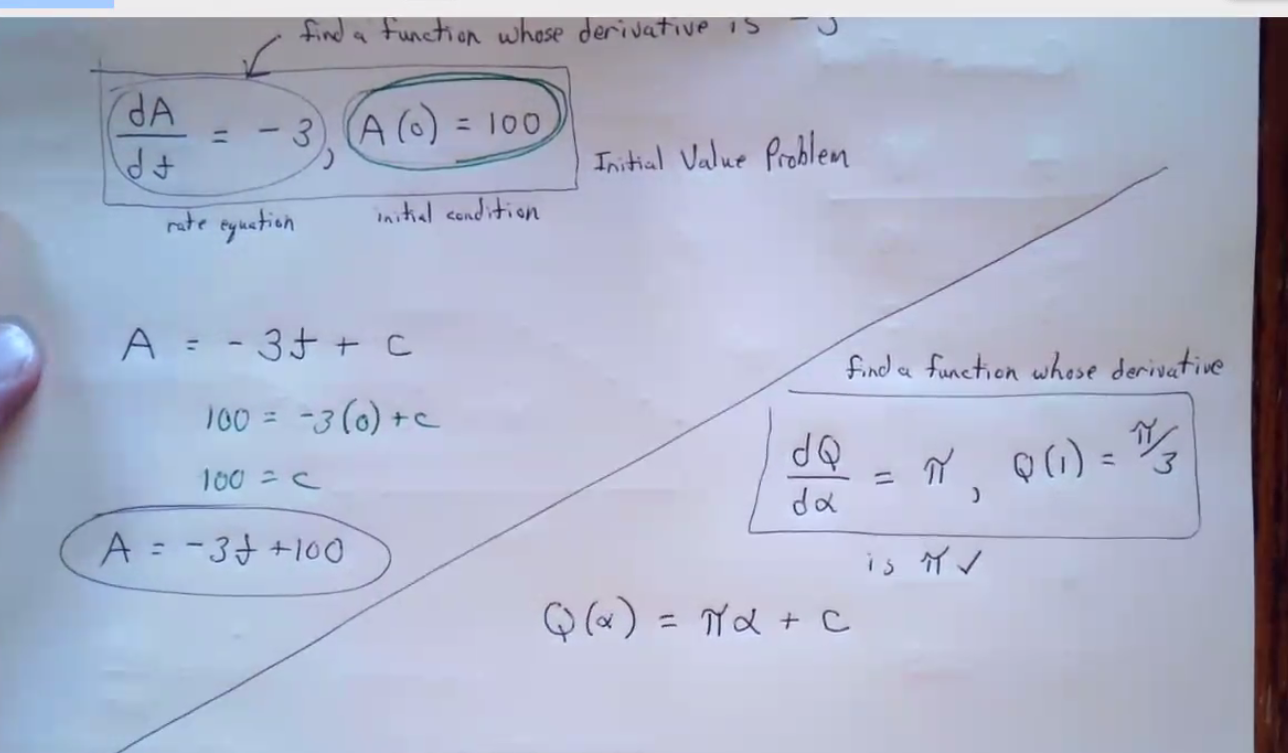 find a function whose derivative is -3
dA/dt = -3, A(0) = 100
Initial Value Problem
rate equation
initial condition
A = -3t + c
100 = -3(0) + c
100 = c
A = -3t + 100
find a function whose derivative
dQ/dα = π, Q(1) = π/3
is π ✓
Q(α) = πα + c